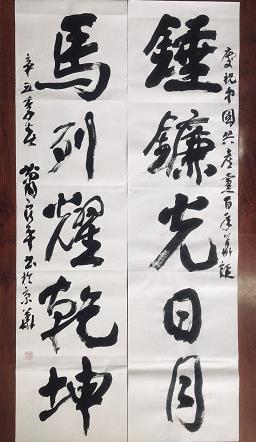 慶祝中國共產黨百年華誕
錘鐮光日月
馬列耀乾坤
辛丑季春
年書於京華